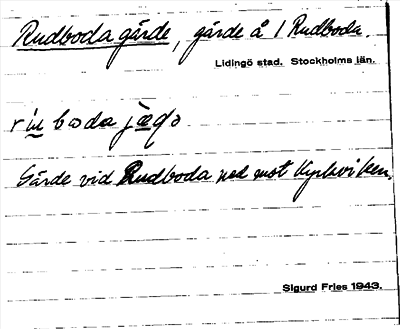 Rudboda gärde, gärde å 1 Rudboda.
Lidingö stad. Stockholms län.
Gärde vid Rudboda ned mot Kyrkviken.
Sigurd Fries 1943.